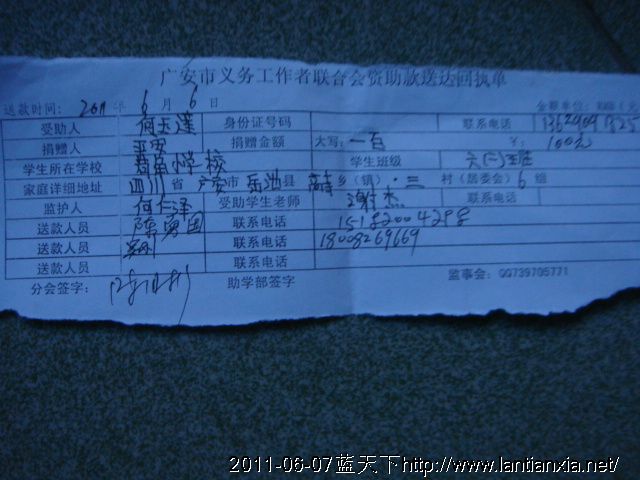 广安市义务工作者联合会资助款送达回执单
送款时间: 2011 年 6 月 6 日 金额单位:
受助人 何玉莲 身份证号码 联系电话
捐赠人 捐赠金额 大写: 一百 ¥: 100元
学生所在学校 小学校 学生班级 六(二)班
家庭详细地址 四川 省 广安 市 岳池 县 乡(镇) 村(居委会) 6 组
监护人 何仁泽 受助学生老师 谢杰
送款人员 陈勇国 联系电话
送款人员 联系电话 18008269669
送款人员 联系电话
分会签字: 助学部签字 监事会: QQ739705771
2011-06-07蓝天下http://www.lantianxia.net/